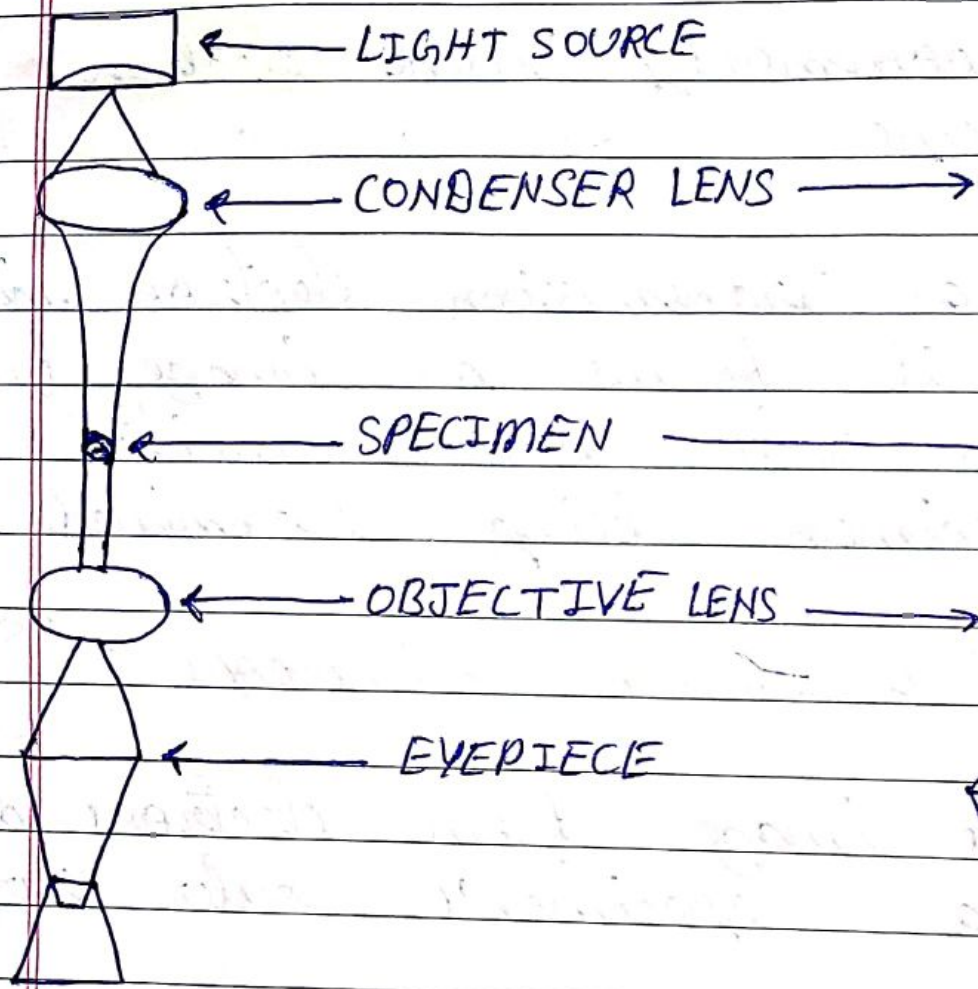 LIGHT SOURCE
CONDENSER LENS
SPECIMEN
OBJECTIVE LENS
EYEPIECE